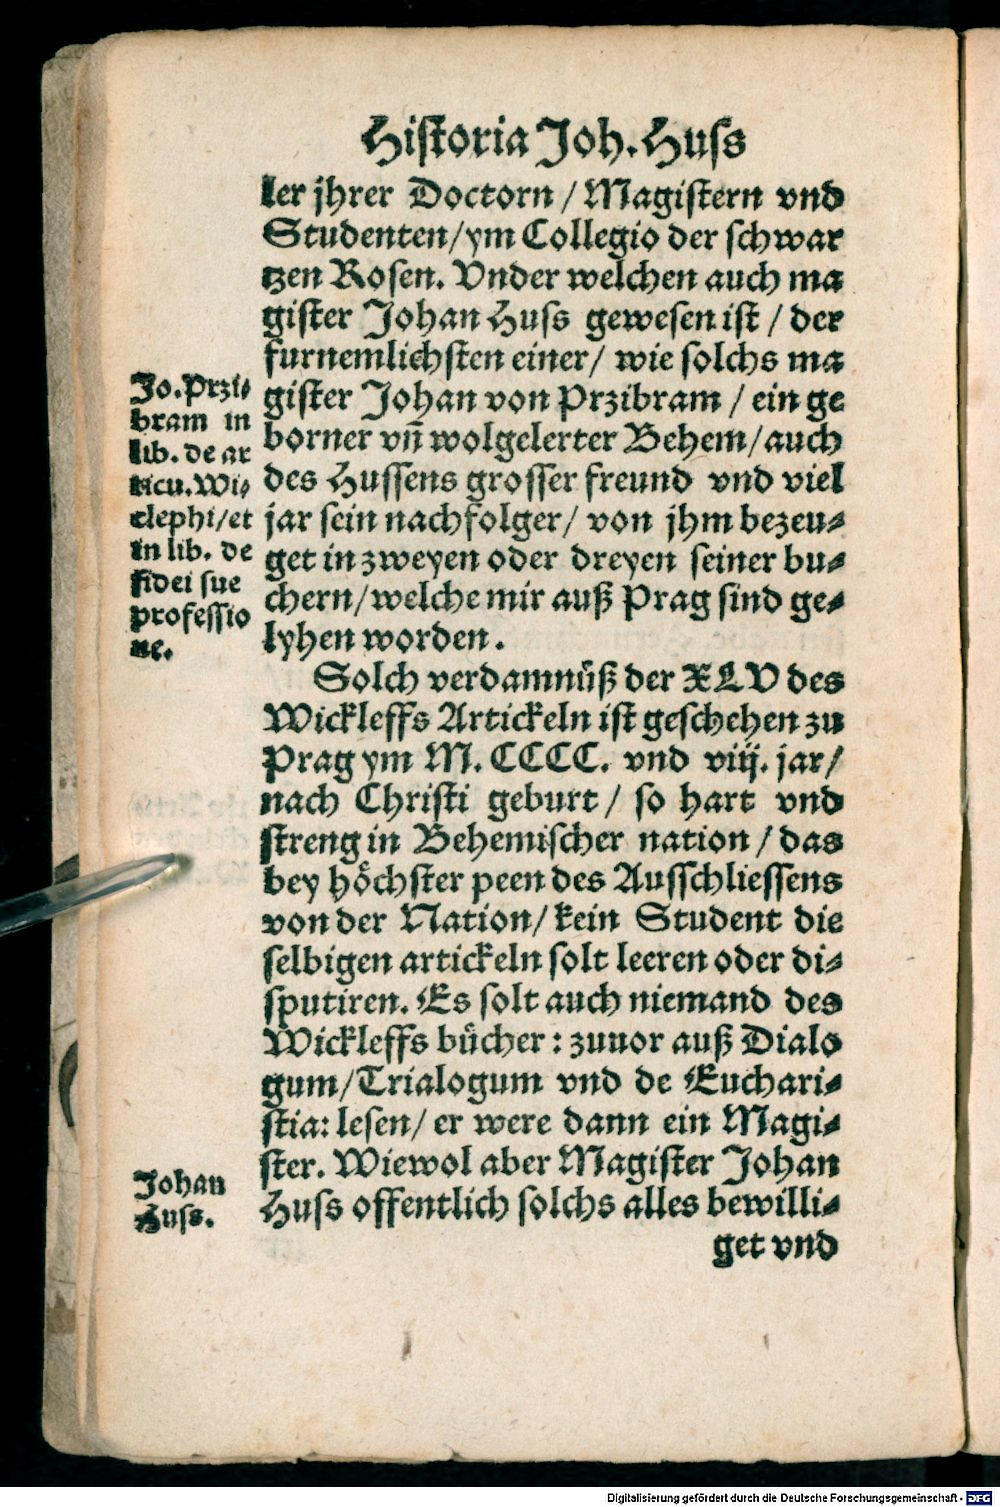 Historia Joh. Huss
ler jhrer Doctorn / Magistern vnd
Studenten/ym Collegio der schwar
tzen Rosen. Vnder welchen auch ma
gister Johan Huss gewesen ist / der
furnemlichsten einer/ wie solchs ma
gister Johan von Przibram / ein ge
borner vñ wolgelerter Behem/auch
des Hussens grosser freund vnd viel
jar sein nachfolger/ von jhm bezeu-
get in zweyen oder dreyen seiner bu-
chern/welche mir auß Prag sind ge-
lyhen worden.
Jo. Przi-
bram in
lib. de ar
ticu. Wi-
clephi/et
in lib. de
fidei sue
professio
ne.
Solch verdamnüß der XLV des
Wickleffs Artickeln ist geschehen zu
Prag ym M. CCCC. vnd viij. jar/
nach Christi geburt / so hart vnd
streng in Behemischer nation / das
bey höchster peen des Ausschliessens
von der Nation/ kein Student die
selbigen artickeln solt leeren oder di-
sputiren. Es solt auch niemand des
Wickleffs bücher : zuuor auß Dialo
gum/Trialogum vnd de Euchari-
stia: lesen/ er were dann ein Magi-
ster. Wiewol aber Magister Johan
Huss offentlich solchs alles bewilli-
Johan
Huss.
get vnd
Digitalisierung gefördert durch die Deutsche Forschungsgemeinschaft - DFG